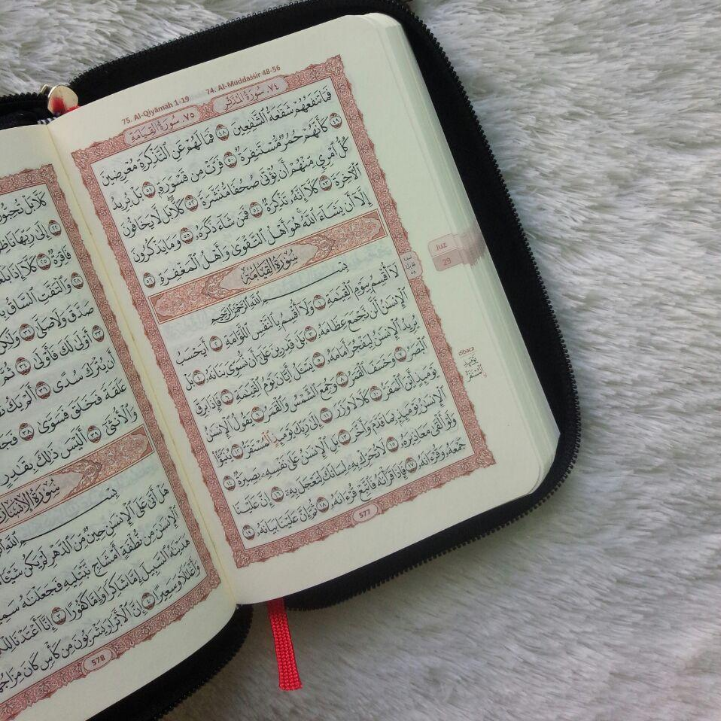 75. Al-Qiyāmah 1-19 74. Al-Muddaṡṡir 48-56
٧٥. سُورَةُ القِيَامَةِ ٧٤. سُورَةُ المُدَّثِّرِ
فَمَا تَنفَعُهُمْ شَفَٰعَةُ ٱلشَّٰفِعِينَ ٤٨ فَمَا لَهُمْ عَنِ ٱلتَّذْكِرَةِ مُعْرِضِينَ
٤٩ كَأَنَّهُمْ حُمُرٌ مُّسْتَنفِرَةٌ ٥٠ فَرَّتْ مِن قَسْوَرَةٍ ٥١ بَلْ يُرِيدُ
كُلُّ ٱمْرِئٍ مِّنْهُمْ أَن يُؤْتَىٰ صُحُفًا مُّنَشَّرَةً ٥٢ كَلَّا بَل لَّا يَخَافُونَ
ٱلْءَاخِرَةَ ٥٣ كَلَّا إِنَّهُۥ تَذْكِرَةٌ ٥٤ فَمَن شَآءَ ذَكَرَهُۥ ٥٥ وَمَا يَذْكُرُونَ
إِلَّا أَن يَشَآءَ ٱللَّهُ هُوَ أَهْلُ ٱلتَّقْوَىٰ وَأَهْلُ ٱلْمَغْفِرَةِ ٥٦
سُورَةُ القِيَامَةِ
بِسْمِ ٱللَّهِ ٱلرَّحْمَٰنِ ٱلرَّحِيمِ
لَآ أُقْسِمُ بِيَوْمِ ٱلْقِيَٰمَةِ ١ وَلَآ أُقْسِمُ بِٱلنَّفْسِ ٱللَّوَّامَةِ ٢ أَيَحْسَبُ
ٱلْإِنسَٰنُ أَلَّن نَّجْمَعَ عِظَامَهُۥ ٣ بَلَىٰ قَٰدِرِينَ عَلَىٰٓ أَن نُّسَوِّىَ بَنَانَهُۥ ٤ بَلْ
يُرِيدُ ٱلْإِنسَٰنُ لِيَفْجُرَ أَمَامَهُۥ ٥ يَسْـَٔلُ أَيَّانَ يَوْمُ ٱلْقِيَٰمَةِ ٦ فَإِذَا بَرِقَ
ٱلْبَصَرُ ٧ وَخَسَفَ ٱلْقَمَرُ ٨ وَجُمِعَ ٱلشَّمْسُ وَٱلْقَمَرُ ٩ يَقُولُ ٱلْإِنسَٰنُ
يَوْمَئِذٍ أَيْنَ ٱلْمَفَرُّ ١٠ كَلَّا لَا وَزَرَ ١١ إِلَىٰ رَبِّكَ يَوْمَئِذٍ ٱلْمُسْتَقَرُّ ١٢ يُنَبَّؤُا۟
ٱلْإِنسَٰنُ يَوْمَئِذٍۭ بِمَا قَدَّمَ وَأَخَّرَ ١٣ بَلِ ٱلْإِنسَٰنُ عَلَىٰ نَفْسِهِۦ بَصِيرَةٌ ١٤
وَلَوْ أَلْقَىٰ مَعَاذِيرَهُۥ ١٥ لَا تُحَرِّكْ بِهِۦ لِسَانَكَ لِتَعْجَلَ بِهِۦٓ ١٦ إِنَّ عَلَيْنَا
جَمْعَهُۥ وَقُرْءَانَهُۥ ١٧ فَإِذَا قَرَأْنَٰهُ فَٱتَّبِعْ قُرْءَانَهُۥ ١٨ ثُمَّ إِنَّ عَلَيْنَا بَيَانَهُۥ ١٩
577
JUZ
29
كَلَّا بَلْ تُحِبُّونَ
٢٢ إِلَىٰ رَبِّهَا نَاظِرَةٌ
فَاقِرَةٌ ٢٥ كَلَّآ إِذَا
٢٨ وَٱلْتَفَّتِ ٱلسَّاقُ
صَدَّقَ وَلَا صَلَّىٰ ٣١ وَلَٰكِن
٣٣ أَوْلَىٰ لَكَ فَأَوْلَىٰ ٣٤ ثُمَّ
أَن يُتْرَكَ سُدًى ٣٦ أَلَمْ يَكُ
عَلَقَةً فَخَلَقَ فَسَوَّىٰ ٣٨
وَٱلْأُنثَىٰٓ ٣٩ أَلَيْسَ ذَٰلِكَ بِقَٰدِرٍ
سُورَةُ الإِنسَانِ
بِسْمِ ٱللَّهِ
هَلْ أَتَىٰ عَلَى ٱلْإِنسَٰنِ حِينٌ مِّنَ ٱلدَّهْرِ لَمْ يَكُن شَيْـًٔا
ٱلْإِنسَٰنَ مِن نُّطْفَةٍ أَمْشَاجٍ نَّبْتَلِيهِ فَجَعَلْنَٰهُ
هَدَيْنَٰهُ ٱلسَّبِيلَ إِمَّا شَاكِرًا وَإِمَّا كَفُورًا ٣ إِنَّآ أَعْتَدْنَا
وَأَغْلَٰلًا وَسَعِيرًا ٤ إِنَّ ٱلْأَبْرَارَ يَشْرَبُونَ مِن كَأْسٍ كَانَ مِزَاجُهَا
578